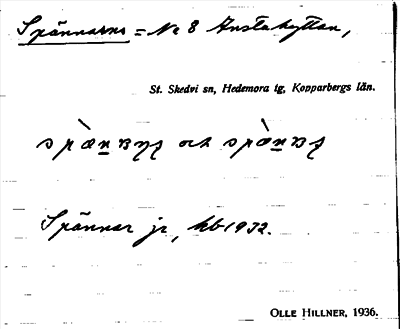 Spännarns = No 8 Anstahyttan,
St. Skedvi sn, Hedemora tg, Kopparbergs län.
och
Spännar jr, hb 1932.
OLLE HILLNER, 1936.